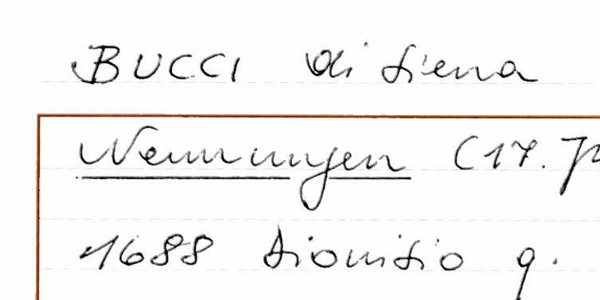 BUCCI di Siena
Nennungen (17. J
1688 Dionisio q.